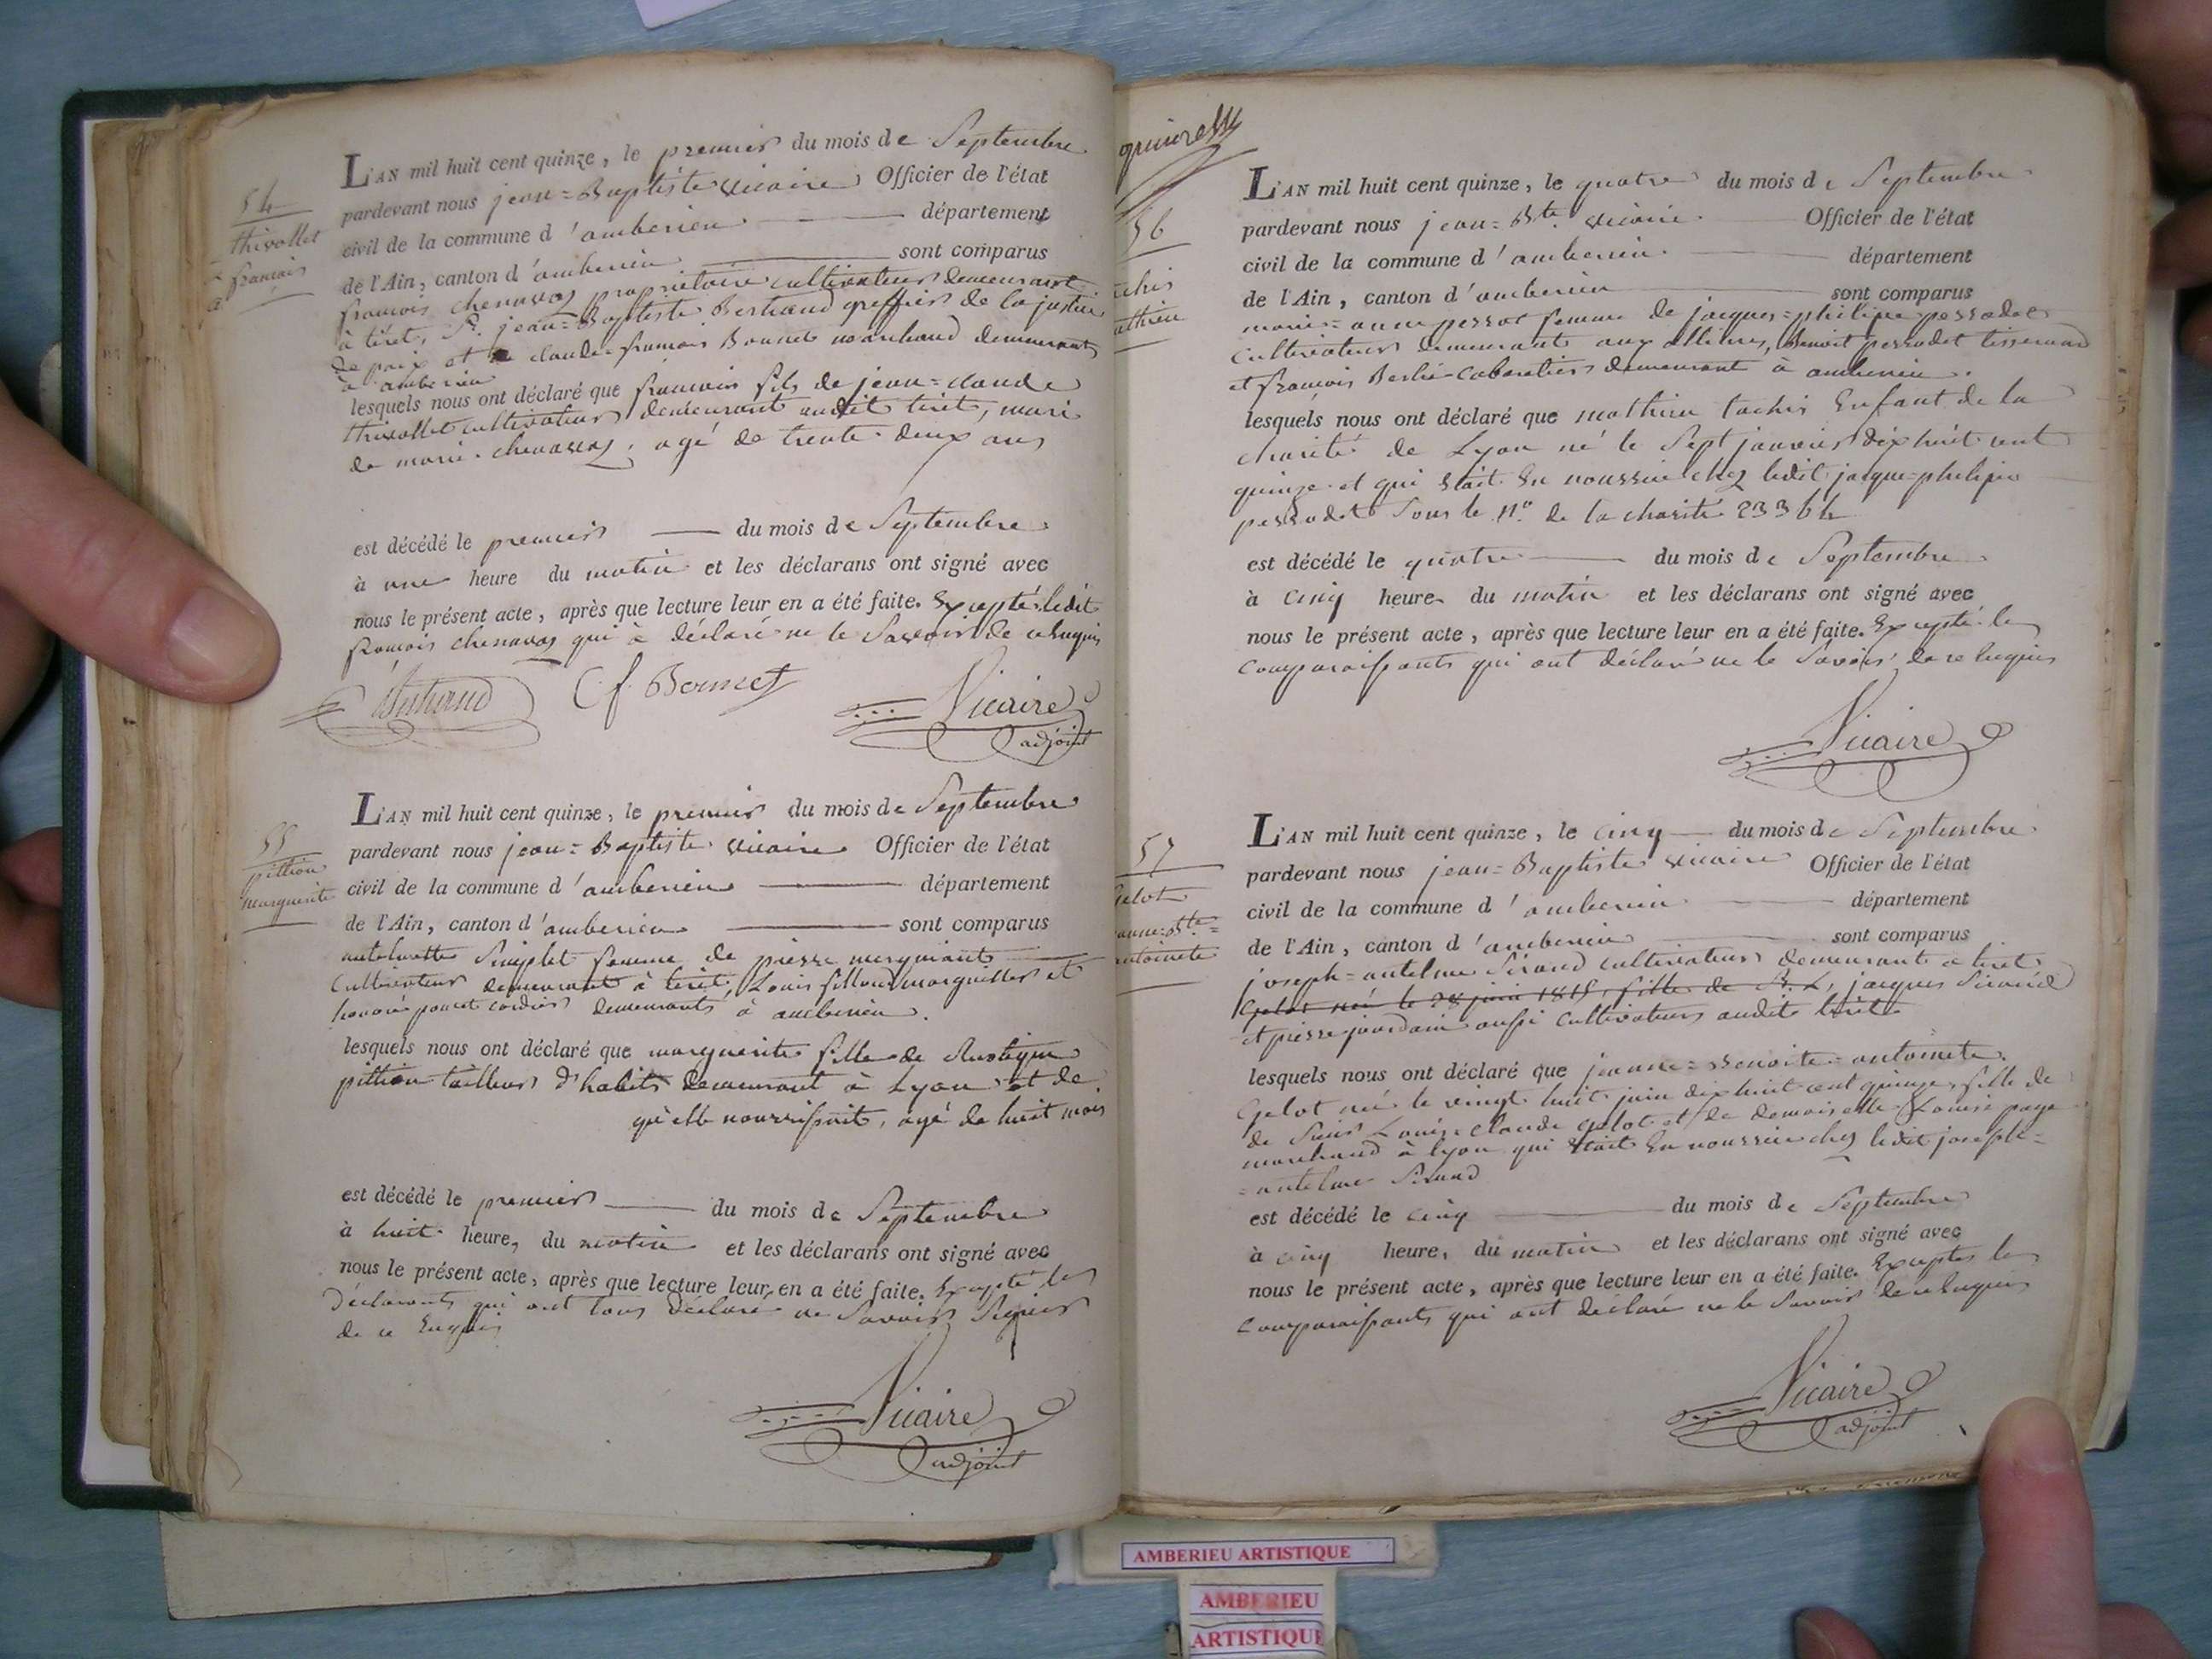 54
thivollet
françois
L'AN mil huit cent quinze, le premier du mois de Septembre
pardevant nous jean=Baptiste Vicaire Officier de l'état
civil de la commune d'amberieu département
de l'Ain, canton d'amberieu sont comparus
françois chenavaz propriétaire cultivateur demeurant
à tiret, Sr. jean=Baptiste Bertrand greffier de la justice
de paix et claude françois Bonnet marchand demeurants
à amberieu
lesquels nous ont déclaré que françois fils de jean=claude
thivollet cultivateur demeurant audit tiret, mari
de marie chenavaz, agé de trente deux ans
est décédé le premier du mois de Septembre
à une heure du matin et les déclarans ont signé avec
nous le présent acte, après que lecture leur en a été faite. Excepté ledit
françois chenavaz qui à déclaré ne le Savoir de ce Enquis
Bertrand C f. Bonnet Vicaire
adjoint
55
pittion
marguerite
L'AN mil huit cent quinze, le premier du mois de Septembre
pardevant nous jean=Baptiste Vicaire Officier de l'état
civil de la commune d'amberieu département
de l'Ain, canton d'amberieu sont comparus
antelmette femme de pierre
cultivateur demeurant à tiret, Louis marguiller et
honoré poncet cordier demeurants à amberieu.
lesquels nous ont déclaré que marguerite fille de
pittion tailleur d'habits demeurant à Lyon et de
qu'elle nourrissait, agé de huit mois
est décédé le premier du mois de Septembre
à huit heures du matin et les déclarans ont signé avec
nous le présent acte, après que lecture leur en a été faite. Excepté les
Déclarants qui ont tous déclaré ne Savoir Signer
de ce Enquis
Vicaire
adjoint
56
L'AN mil huit cent quinze, le quatre du mois de Septembre
pardevant nous jean=Bte. Vicaire Officier de l'état
civil de la commune d'amberieu département
de l'Ain, canton d'amberieu sont comparus
marie=anne perrot femme de jacques=philipe perrodet
cultivateur demeurants aux allimes, Benoit perrodet tisserand
et françois Berlié cabaretier demeurant à amberieu.
lesquels nous ont déclaré que mathieu tachis Enfant de la
charité de Lyon né le Sept janvier dix huit cent
quinze et qui était En nourrice chez ledit jacque=philipe
perrodet Sous le No. de la charité 23364
est décédé le quatre du mois de Septembre
à cinq heures du matin et les déclarans ont signé avec
nous le présent acte, après que lecture leur en a été faite. Excepté les
comparaissants qui ont déclaré ne le Savoir de ce Enquis
Vicaire
57
Gelot
antoinete
L'AN mil huit cent quinze, le cinq du mois de Septembre
pardevant nous jean=Baptiste Vicaire Officier de l'état
civil de la commune d'amberieu département
de l'Ain, canton d'amberieu sont comparus
joseph=antelme Sirand cultivateur demeurant a tiret
Gelot née le 28 juin 1815, fille de Sr. L, jacques Sirand
et pierre jourdain aussi cultivateurs audit tiret
lesquels nous ont déclaré que jeanne=Benoite=antoinete
Gelot née le vingt huit juin dix huit cent quinze, fille de
de Sieur Louis claude Gelot et de demoiselle Louise page
marchand à lyon qui était En nourrice chez ledit joseph=
=antelme Sirand
est décédé le cinq du mois de Septembre
à cinq heures du matin et les déclarans ont signé avec
nous le présent acte, après que lecture leur en a été faite. Exceptés les
comparaissants qui ont déclaré ne le Savoir de ce Enquis
Vicaire
adjoint
AMBERIEU ARTISTIQUE
AMBERIEU
ARTISTIQUE